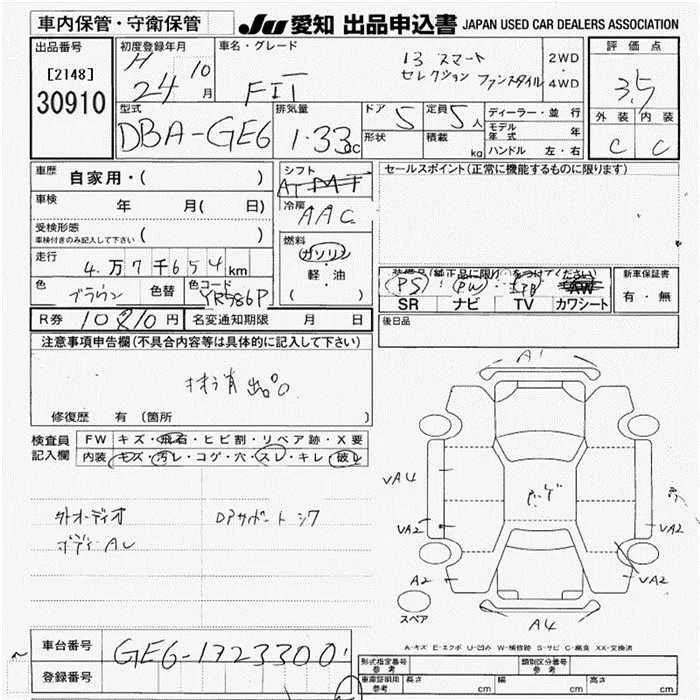 車内保管・守衛保管
JU 愛知 出品申込書 JAPAN USED CAR DEALERS ASSOCIATION
出品番号
[2148]
30910
初度登録年月
H 24 10 月
車名・グレード
FIT
13 スマート
セレクション ファンスタイル
2WD
・
4WD
評価点
3.5
外装 内装
C C
型式
DBA-GE6
排気量
1.33 cc
ドア 5
形状
定員 5 人
積載 kg
ディーラー・並行
モデル年式 年
ハンドル 左・右
車歴 自家用・( )
車検 年 月( 日)
受検形態
車検付きのみ記入して下さい ( )
走行 4万7千654km
色 ブラウン 色替 色コード YR586P
シフト
AT
冷房
AAC
燃料
ガソリン
・
軽・油
( )
セールスポイント(正常に機能するものに限ります)
装備品(純正品に限り○をつけてください)
PS PW PB AW
SR ナビ TV カワシート
新車保証書
有・無
R券 10210円 名変通知期限 月 日
後日品
注意事項申告欄(不具合内容等は具体的に記入して下さい)
修復歴 有 (箇所
検査員
記入欄
FW キズ・飛石・ヒビ割・リペア跡・X要
内装 キズ・汚レ・コゲ・穴・スレ・キレ・破レ
外オーディオ DPサポートシワ
ボディ AU
A1
VA4
VA2
VA2
A2
VA2
A4
スペア
A-キズ E-エクボ U-凹み W-補修跡 S-サビ C-腐食 XX-交換済
車台番号 GE6-1723300
登録番号
形式指定番号
参考
類別区分番号
参考
車庫証明用
参考
長さ cm 幅 cm 高さ cm